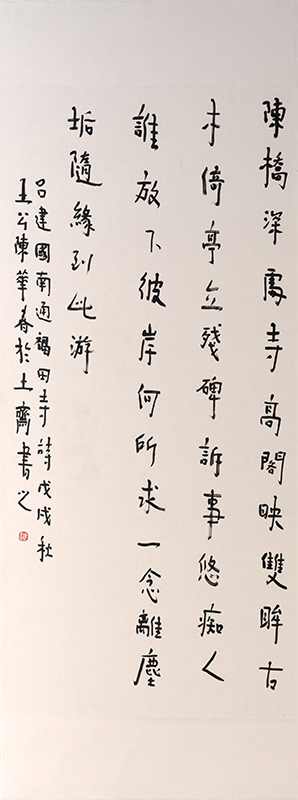 陳橋深處寺高閣映雙眸古
木倚亭立殘碑訴事悠痴人
誰放下彼岸何所求一念離塵
垢隨緣到此游
呂建國南通福田寺詩戊戌秋
王公陳華春於土齋書之